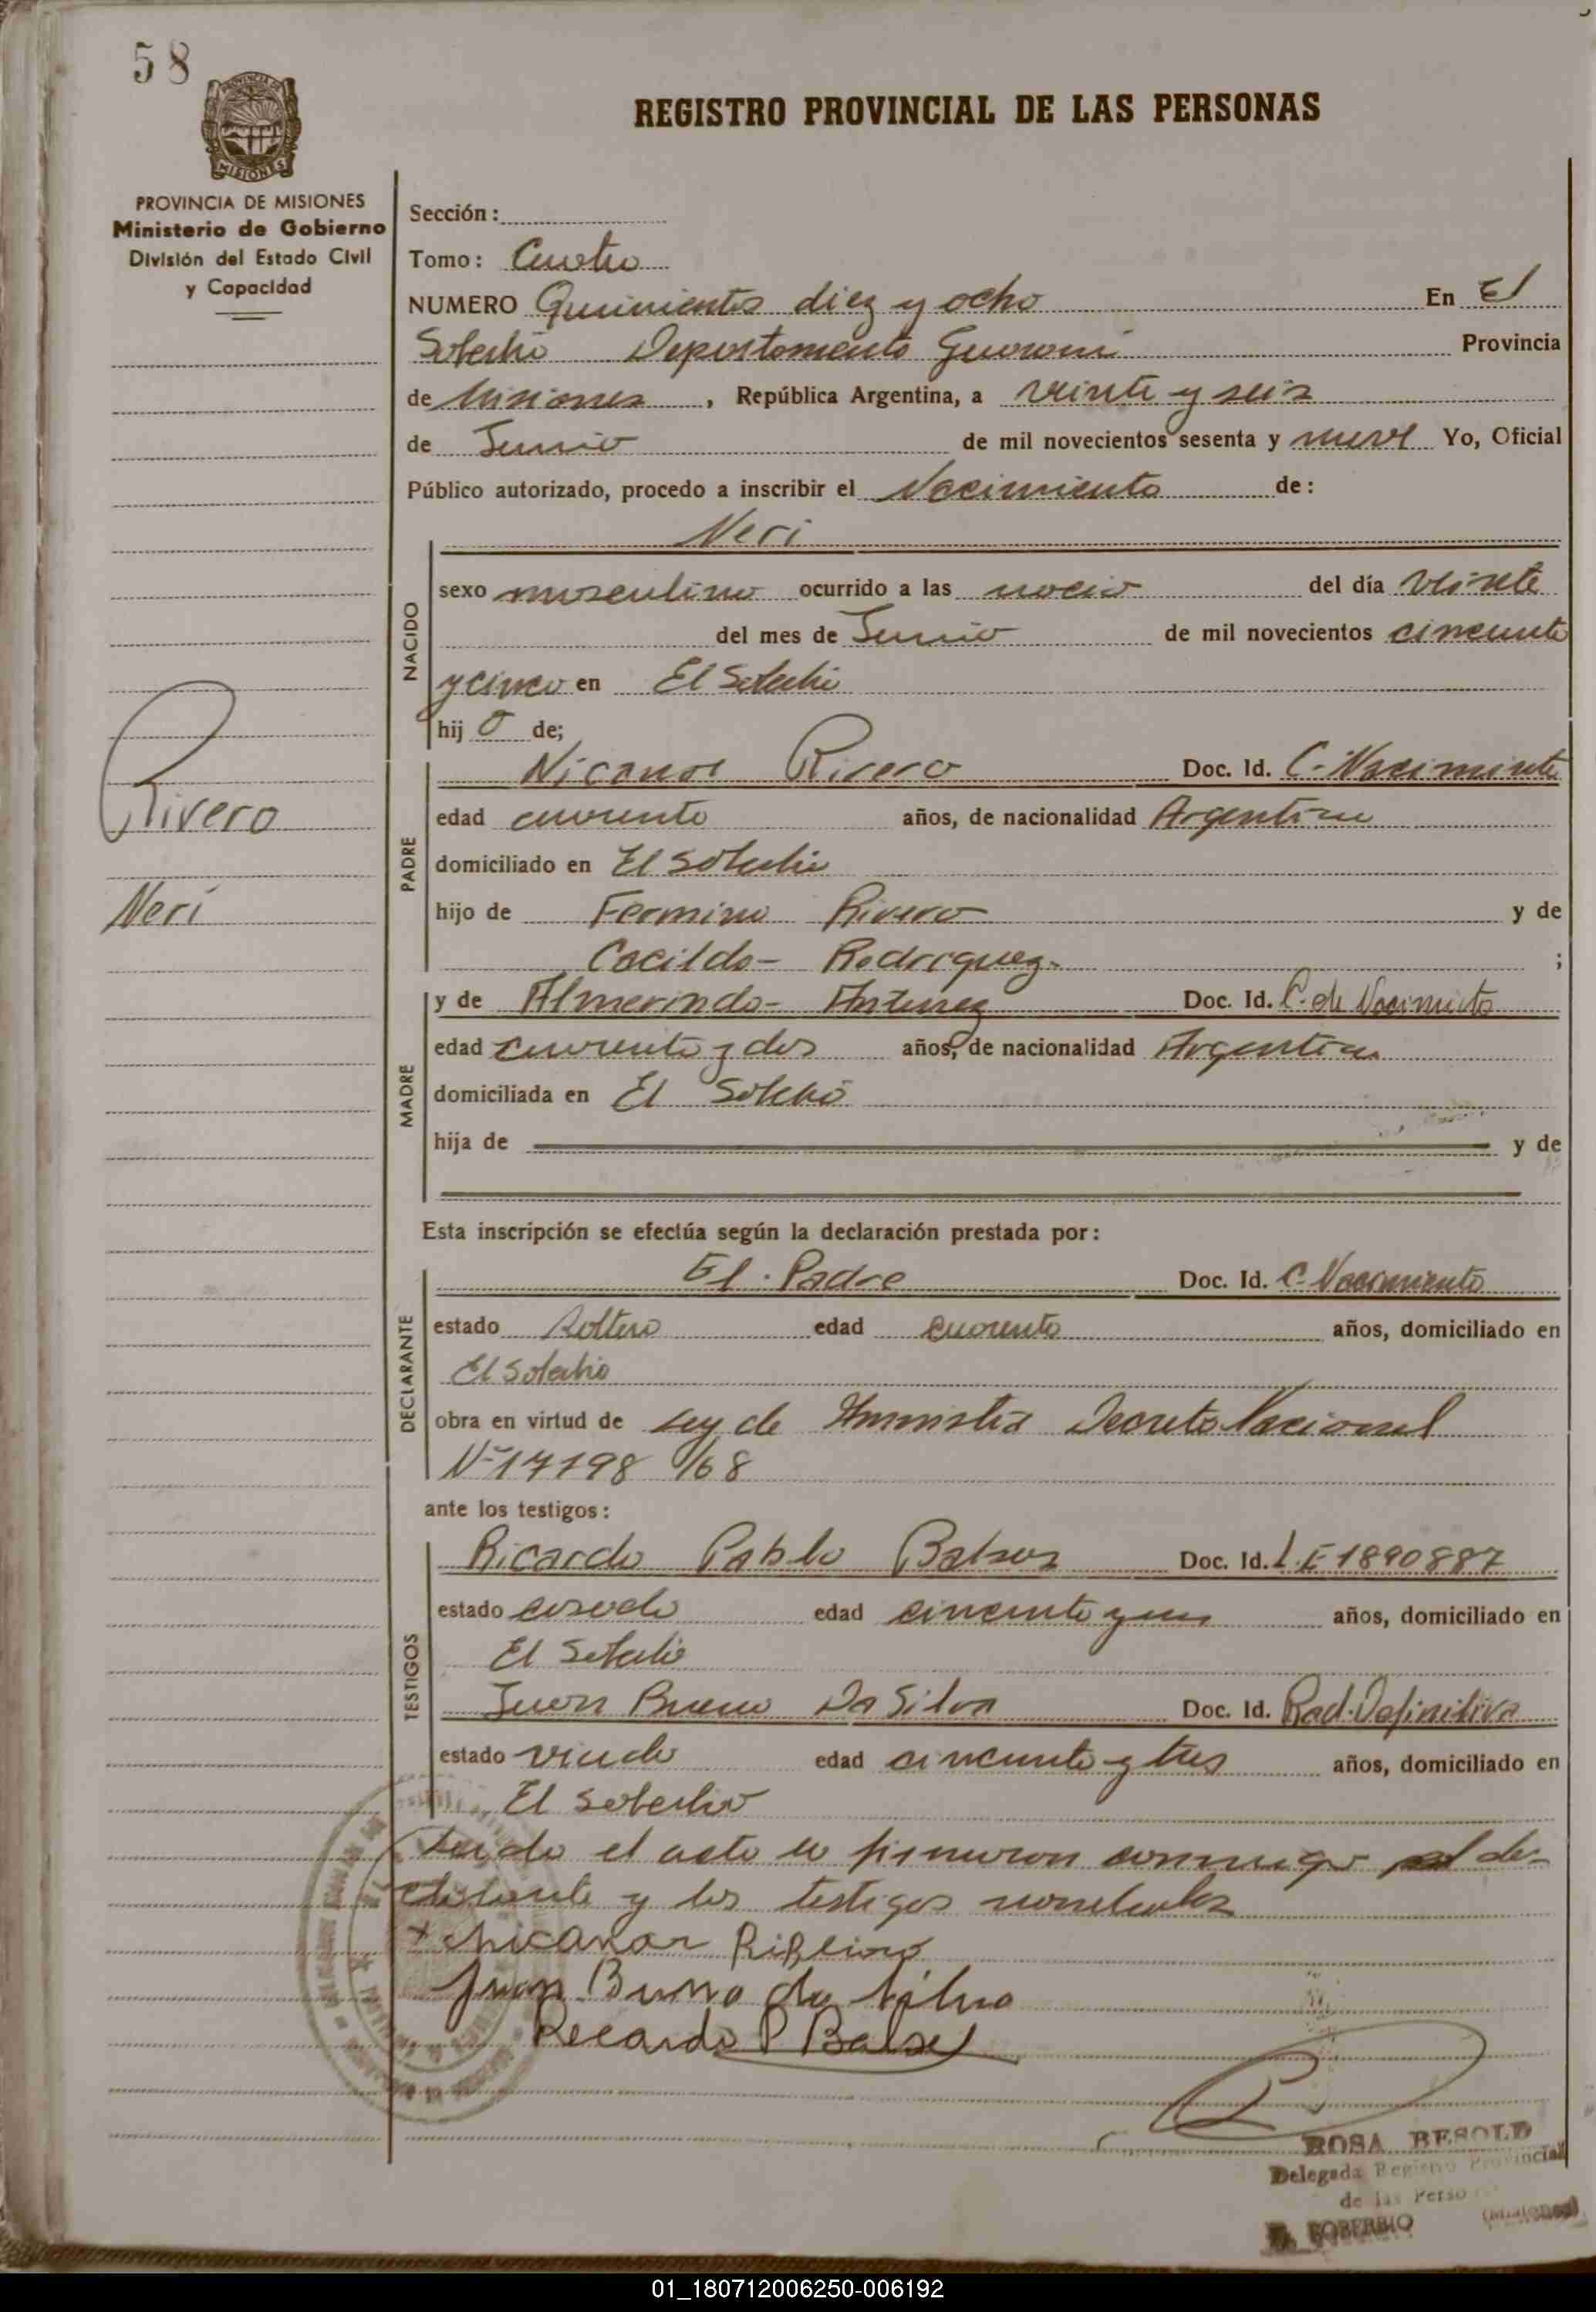 58
REGISTRO PROVINCIAL DE LAS PERSONAS
PROVINCIA DE MISIONES
Ministerio de Gobierno
División del Estado Civil
y Capacidad
Sección:
Tomo: Cuatro
NUMERO Quinientos diez y ocho En El
Soberbio Departamento Guarani Provincia
de Misiones, República Argentina, a veinte y seis
de Junio de mil novecientos sesenta y nueve Yo, Oficial
Público autorizado, procedo a inscribir el Nacimiento de:
Neri
NACIDO
sexo masculino ocurrido a las del día veinte
del mes de Junio de mil novecientos cincuenta
y cinco en El Soberbio
hij o de;
Rivero
Neri
PADRE
Nicanor Rivero Doc. Id. C. Nacimiento
edad cuarenta años, de nacionalidad Argentina
domiciliado en El Soberbio
hijo de Fermino Rivero y de
Cacilda Rodriguez. ;
MADRE
y de Almerinda Antunez Doc. Id. C. de Nacimiento
edad cuarenta y dos años, de nacionalidad Argentina
domiciliada en El Soberbio
hija de y de
Esta inscripción se efectúa según la declaración prestada por:
DECLARANTE
El Padre Doc. Id. C. Nacimiento
estado soltero edad cuarenta años, domiciliado en
El Soberbio
obra en virtud de Ley de Amnistia Decreto Nacional
Nº 17198/68
ante los testigos:
TESTIGOS
Ricardo Pablo Doc. Id. L.E 1890887
estado casado edad cincuenta y un años, domiciliado en
El Soberbio
Juan Bueno Da Silva Doc. Id. Rad. Definitiva
estado viudo edad cincuenta y tres años, domiciliado en
El Soberbio
Leido el acta lo firmaron conmigo el de-
clarante y los testigos nombrados
x Nicanor
Juan Buno da Silva
Recardo P Balse
ROSA BESOLD
Delegada Registro Provincial
de las Perso
EL SOBERBIO (Misiones)
01_180712006250-006192